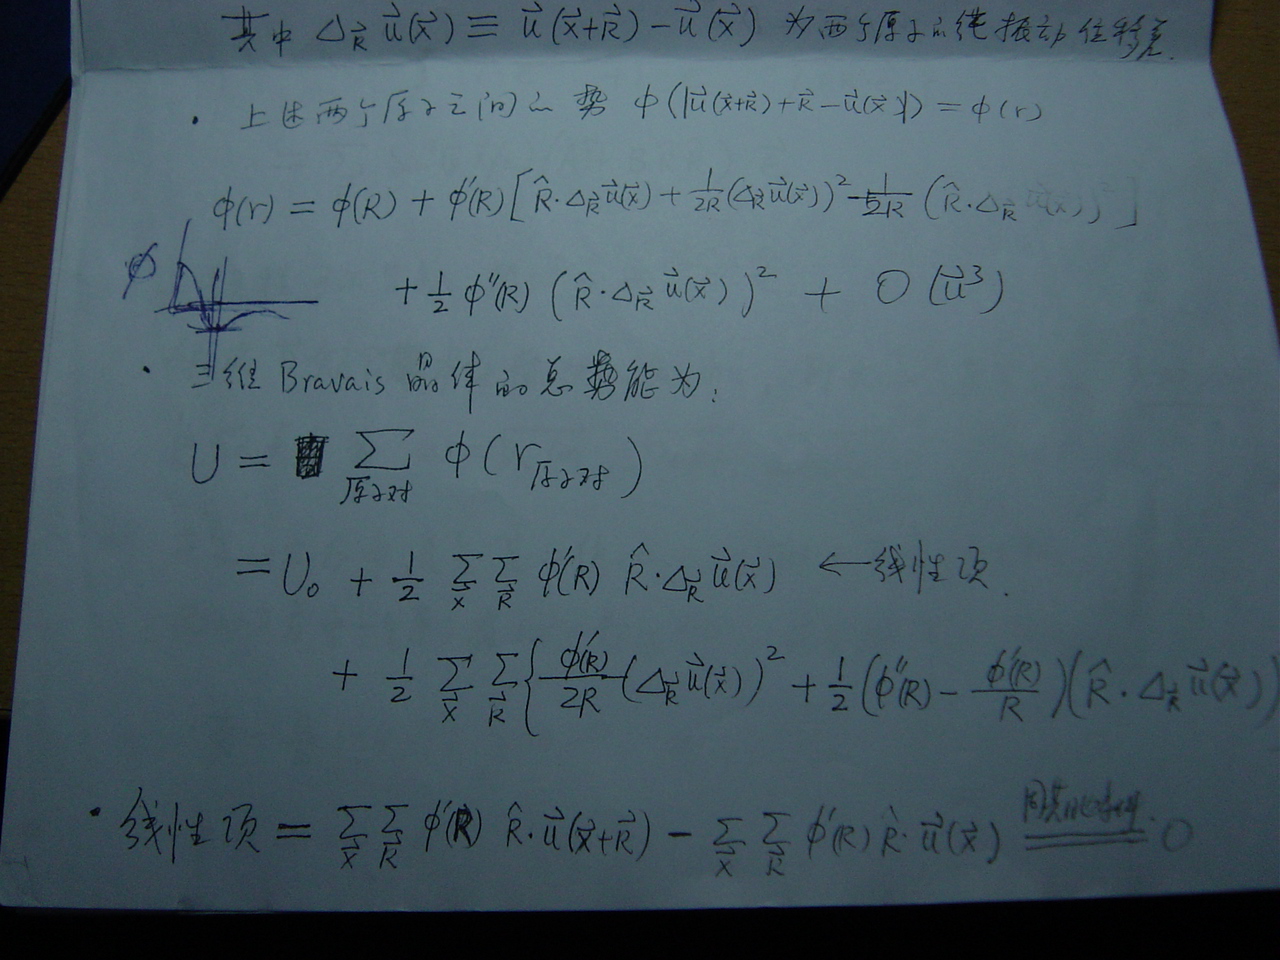 其中 Δ_R⃗ u⃗(x⃗) ≡ u⃗(x⃗+R⃗) − u⃗(x⃗) 为两个原子的纯振动位移差.
· 上述两个原子之间的势 φ(|u⃗(x⃗+R⃗)+R⃗−u⃗(x⃗)|) = φ(r)
φ(r) = φ(R) + φ′(R) [R̂·Δ_R⃗ u⃗(x⃗) + 1/2R (Δ_R⃗ u⃗(x⃗))² − 1/2R (R̂·Δ_R⃗ u⃗(x⃗))²]
φ
+ 1/2 φ″(R) (R̂·Δ_R⃗ u⃗(x⃗))² + O(u⃗³)
· 三维Bravais晶体的总势能为:
U = ∑_原子对 φ(r_原子对)
= U₀ + 1/2 ∑_x⃗ ∑_R⃗ φ′(R) R̂·Δ_R⃗ u⃗(x⃗) ← 线性项.
+ 1/2 ∑_x⃗ ∑_R⃗ { φ′(R)/2R (Δ_R⃗ u⃗(x⃗))² + 1/2 (φ″(R) − φ′(R)/R)(R̂·Δ_R⃗ u⃗(x⃗))
· 线性项 = ∑_x⃗ ∑_R⃗ φ′(R) R̂·u⃗(x⃗+R⃗) − ∑_x⃗ ∑_R⃗ φ′(R) R̂·u⃗(x⃗) = 0